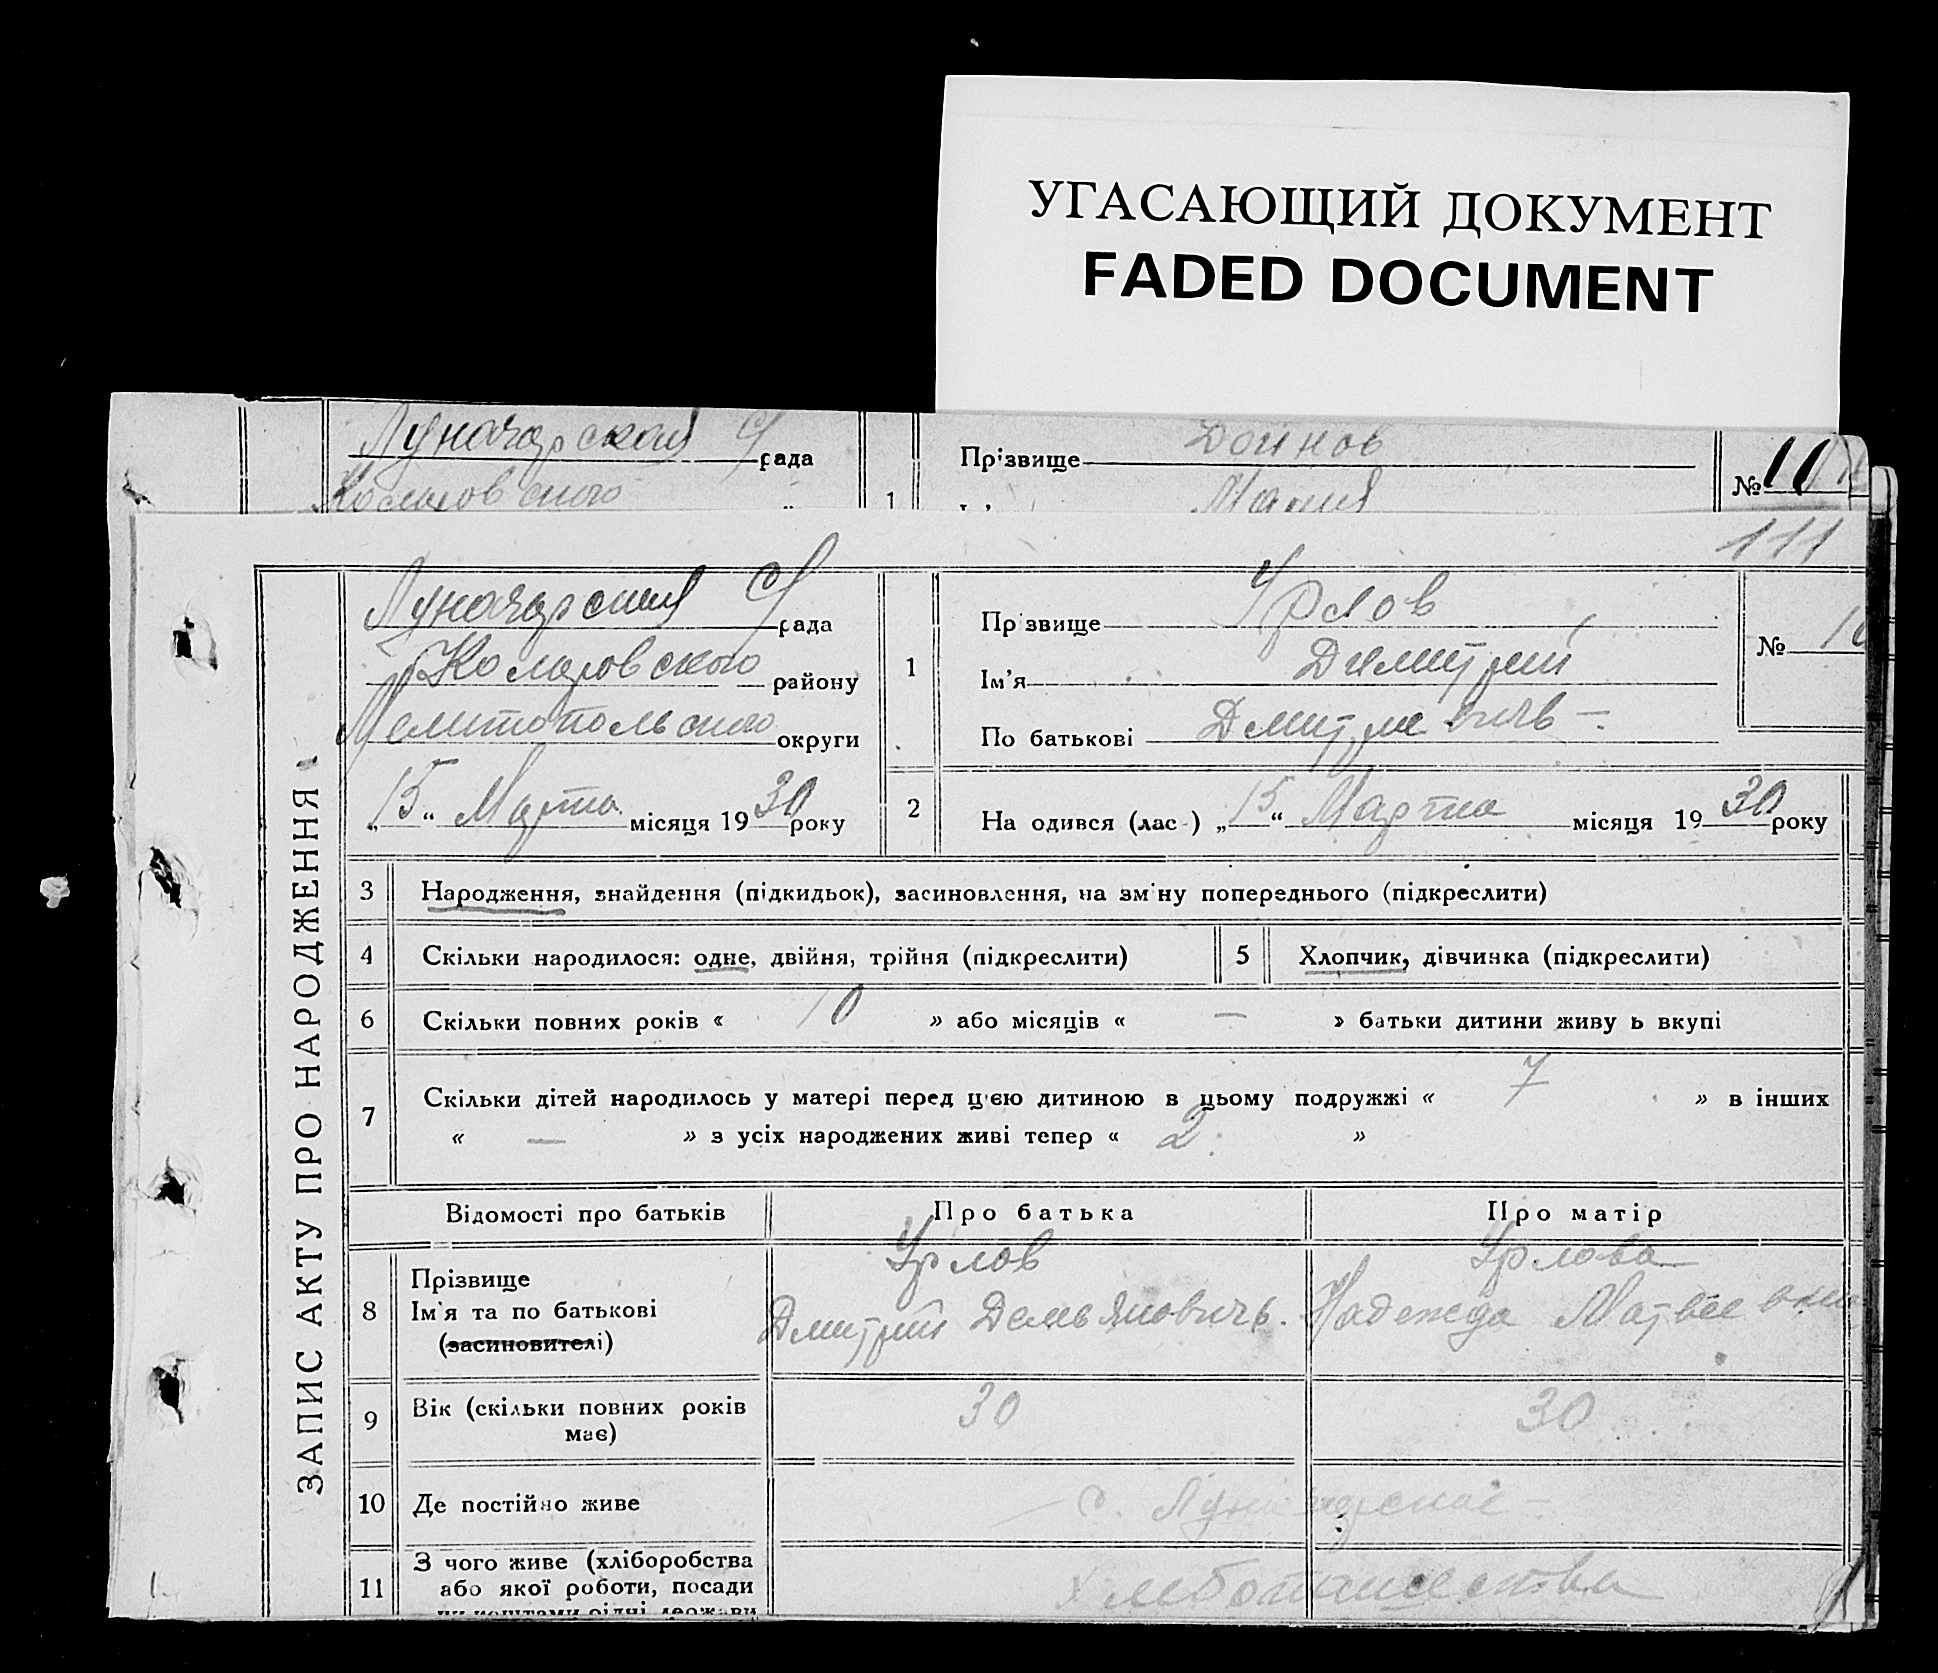 УГАСАЮЩИЙ ДОКУМЕНТ
FADED DOCUMENT
Луначарская С/ рада
Прізвище Дойнов
№ 10
Коларовского
1
Мария
111
ЗАПИС АКТУ ПРО НАРОДЖЕННЯ
Луначарская С/ рада
Коларовского району
Мелитопольского округи
„15“ Марта місяця 1930 року
1
Пр звище Урлов
Ім'я Димитрий
По батькові Дмитриевичь
№ 10
2
На одився (лас ) „15“ Марта місяця 1930 року
3 Народження, знайдення (підкидьок), засиновлення, на зміну попереднього (підкреслити)
4 Скільки народилося: одне, двійня, трійня (підкреслити)
5 Хлопчик, дівчинка (підкреслити)
6 Скільки повних років « 10 » або місяців « — » батьки дитини живу ь вкупі
7 Скільки дітей народилось у матері перед цією дитиною в цьому подружжі « 7 » в інших
« — » з усіх народжених живі тепер « 2 »
Відомості про батьків
Про батька
Про матір
8
Прізвище
Ім'я та по батькові
(засиновителі)
Урлов
Дмитрий Демьяновичь.
Урлова
Надежда Матвее
9
Вік (скільки повних років
має)
30
30
10 Де постійно живе
с. Луначарское
11
З чого живе (хліборобства
або якої роботи, посади
чи коштами рідні, держави
Хлебопашества